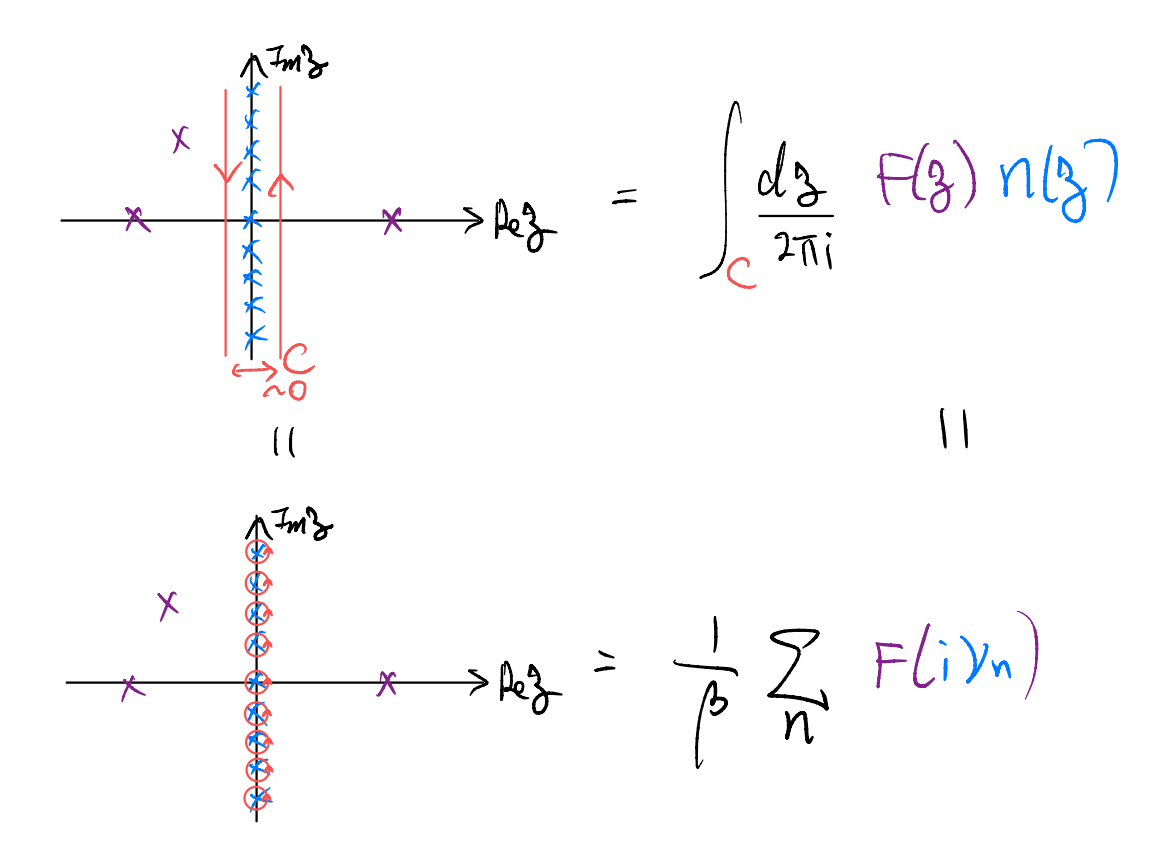 Im z
Re z
C
~0
= ∫_C dz/2πi F(z) n(z)
=
=
Im z
Re z
= 1/β ∑_n F(iνn)